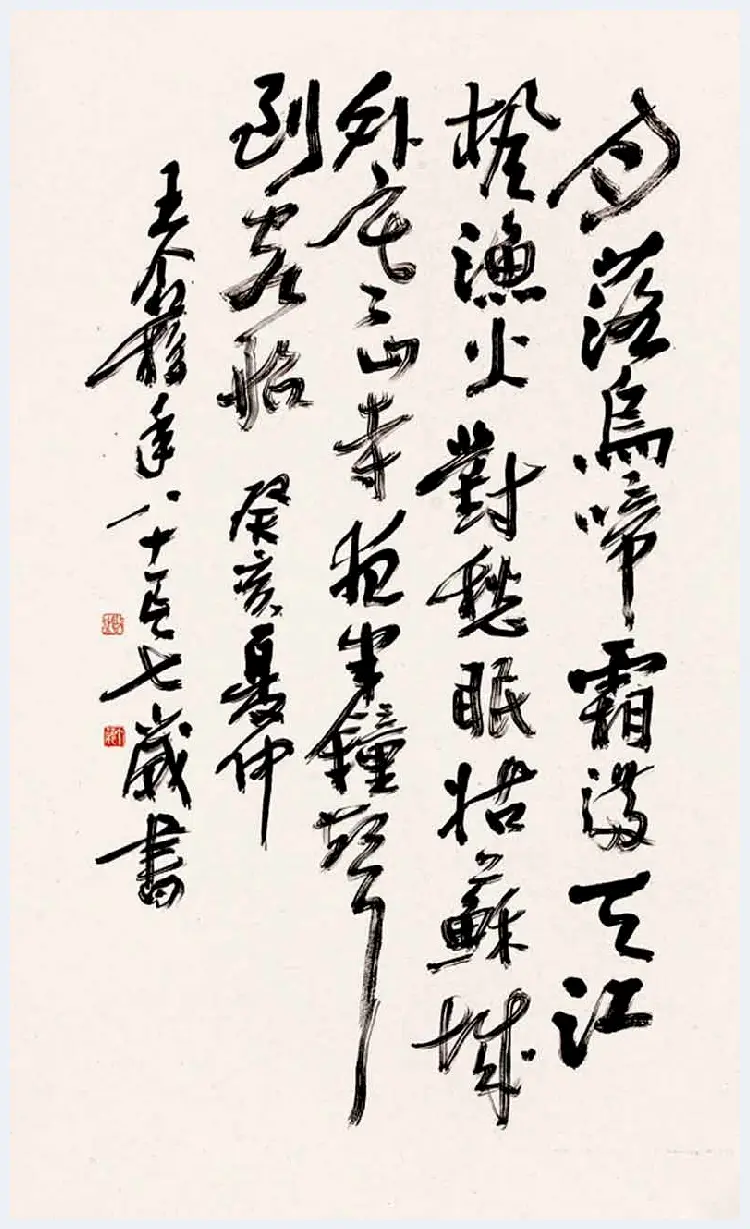 月落烏啼霜滿天江
楓漁火對愁眠姑蘇城
外寒山寺夜半鐘聲
到客船 癸亥夏仲
王个簃年八十有七歲書